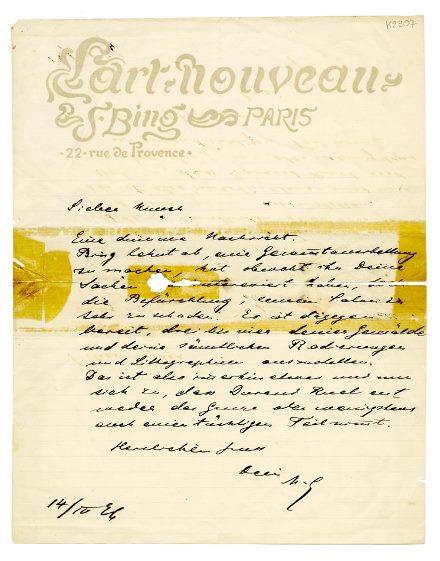 K2907
L'art-nouveau
S. Bing PARIS
·22· rue de Provence·
Lieber Munch
Eine dumme Nachricht.
Bing lehnt ab, eine Gesamtausstellung
zu machen, hat obwohl ihn Deine
Sachen interessiert haben,
die Befürchtung, seinem Salon zu
sehr zu schaden. Er ist dagegen
bereit, vier deiner Gemälde
und deine sämtlichen Radierungen
und Lithographien auszustellen.
Das ist also immerhin etwas und nun
sich zu, dass Durand Ruel ent
weder das Ganze oder wenigstens
auch einen tüchtigen Teil nimmt.
Herzlichen Gruss
Dein
M-G
14/IV 96